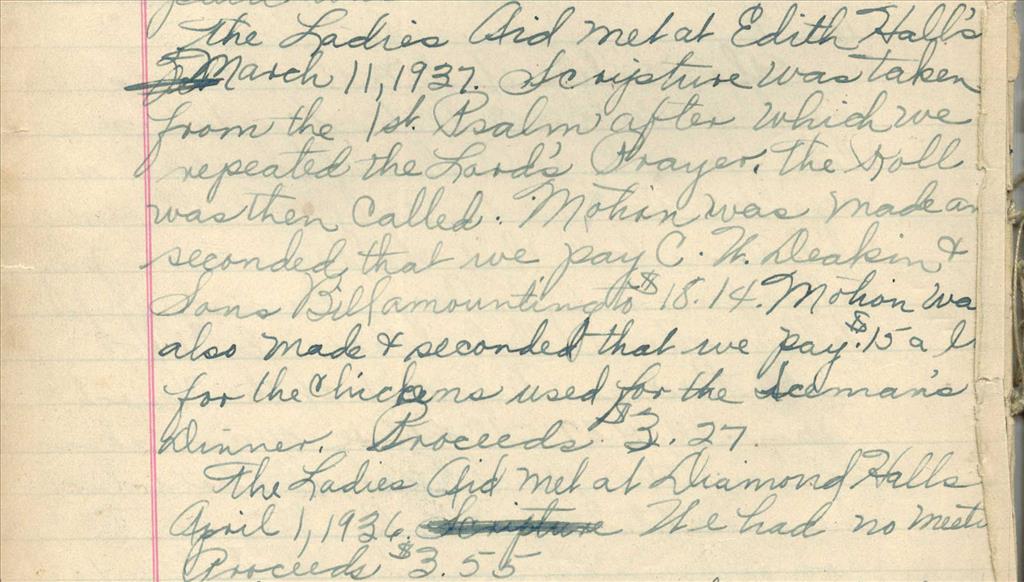 The Ladies Aid met at Edith Hall's
March 11, 1937. Scripture was taken
from the 1st. Psalm after which we
repeated the Lord's Prayer. The Roll
was then Called. Motion was made an
seconded that we pay C. W. Deakin &
Sons Bill amounting to $18.14. Motion wa
also made & seconded that we pay $.15 a l
for the chickens used for the Iceman's
Dinner. Proceeds $3.27
The Ladies Aid met at Diamond Halls
April 1, 1936. Scripture We had no meeti
Proceeds $3.55